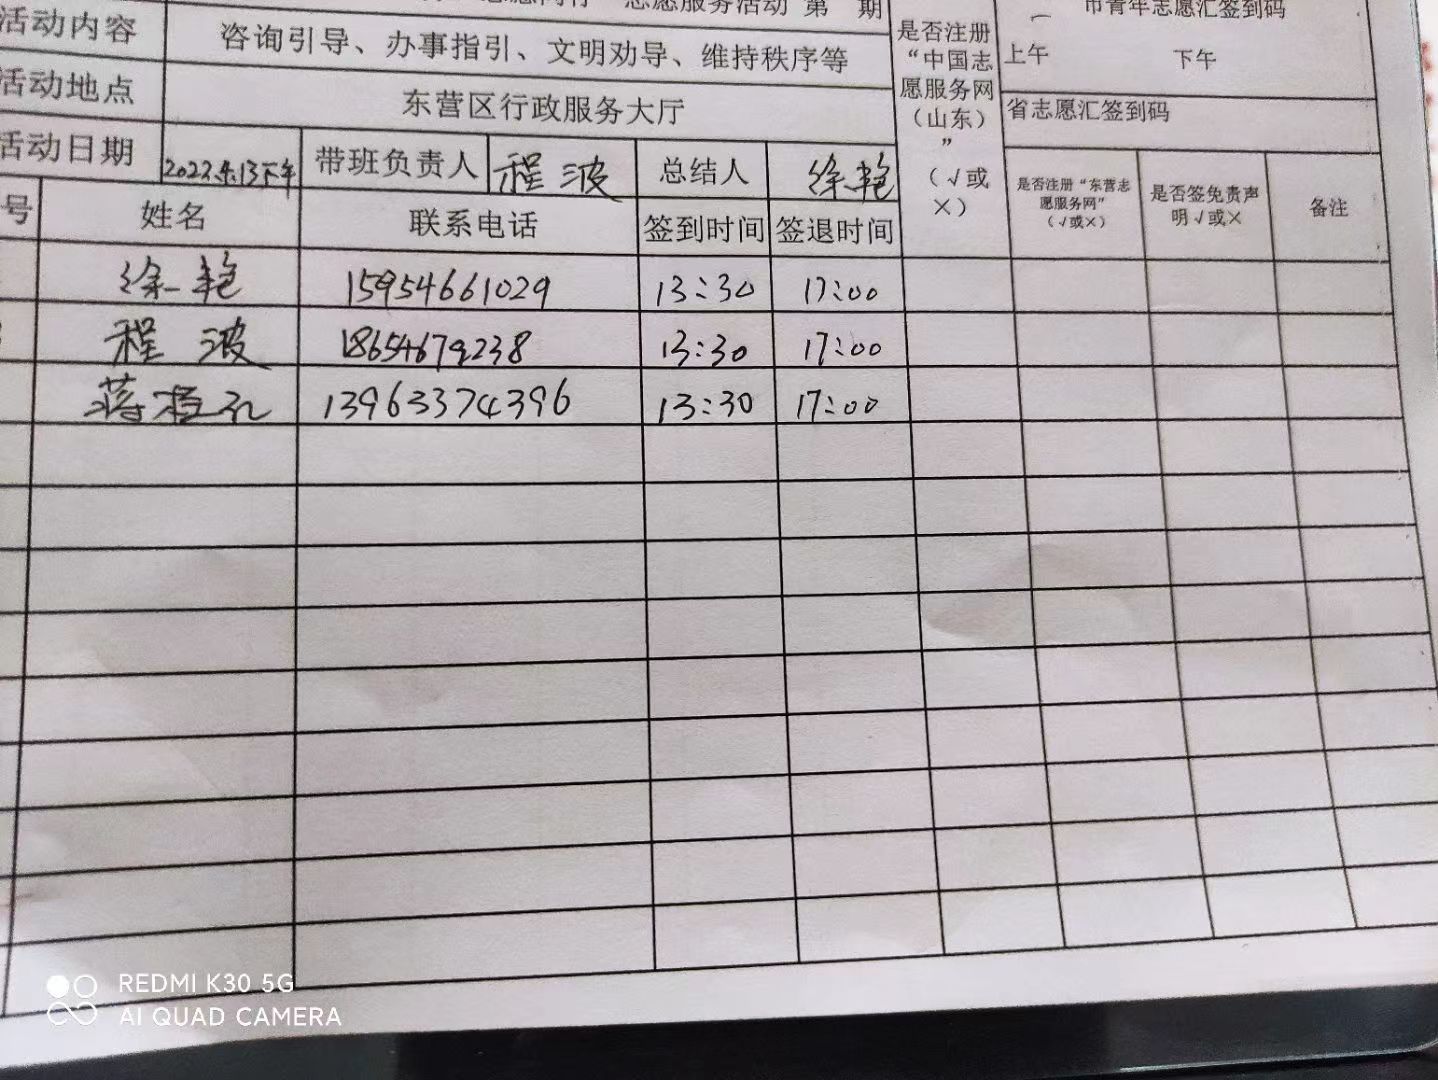 志愿服务活动 第 期
活动内容 咨询引导、办事指引、文明劝导、维持秩序等
活动地点 东营区行政服务大厅
活动日期 带班负责人 程波 总结人 徐艳
是否注册
“中国志
愿服务网
（山东）
”
（√或
×）
市青年志愿汇签到码
上午 下午
省志愿汇签到码
号 姓名 联系电话 签到时间 签退时间
是否注册“东营志
愿服务网”
（√或×）
是否签免责声
明√或×
备注
徐艳 15954661029 13:30 17:00
程波 18654679238 13:30 17:00
13963374396 13:30 17:00
REDMI K30 5G
AI QUAD CAMERA